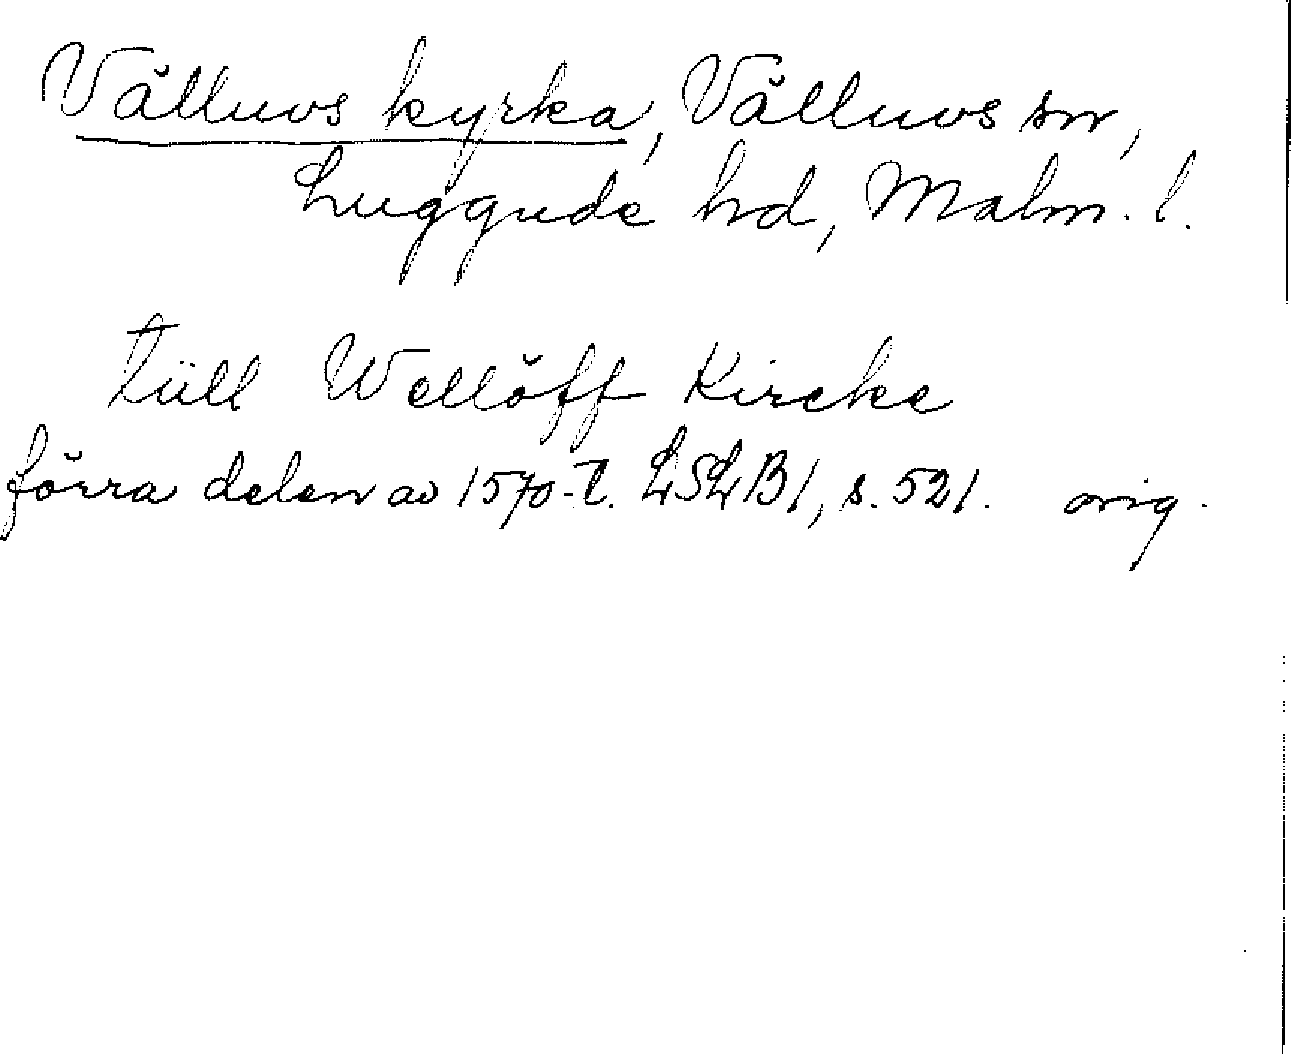 Välluvs kyrka, Välluvs sn,
Luggude hd, Malm. l.
tüll Wellöff Kircke
förra delen av 1570-t. LSLB1, s. 521. orig.